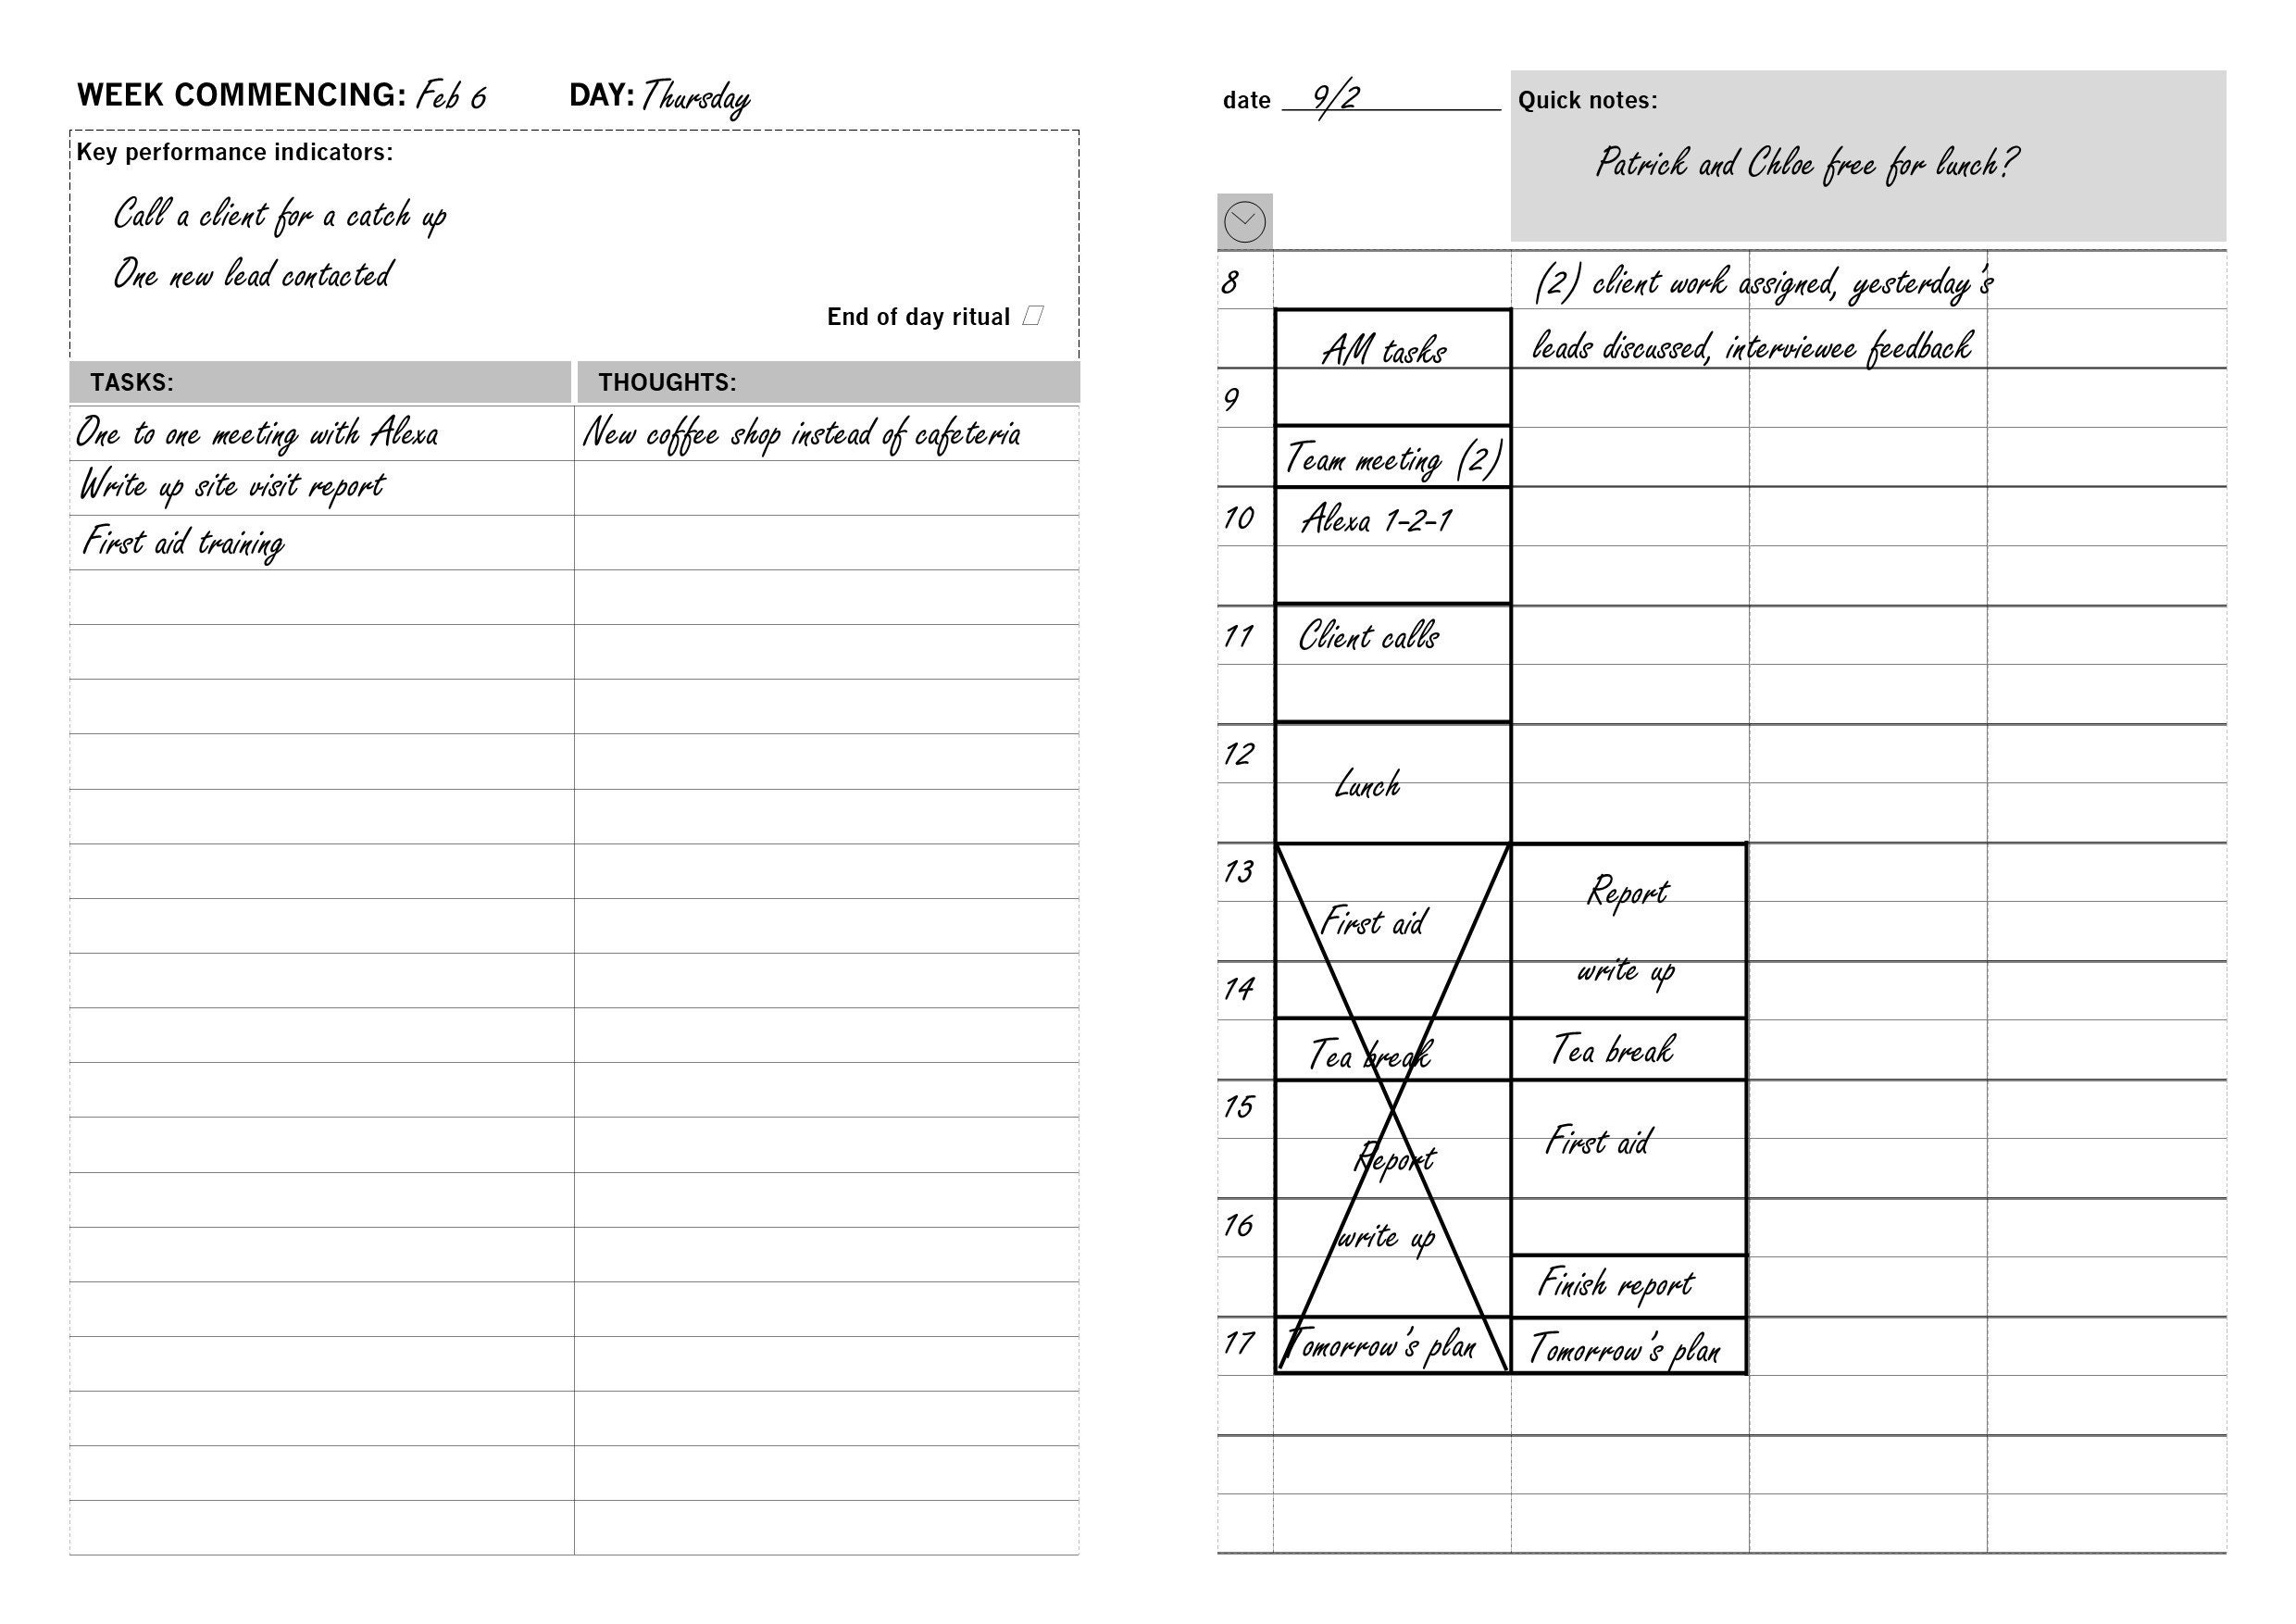 WEEK COMMENCING: Feb 6 DAY: Thursday
Key performance indicators:
Call a client for a catch up
One new lead contacted
End of day ritual
TASKS: THOUGHTS:
One to one meeting with Alexa New coffee shop instead of cafeteria
Write up site visit report
First aid training
date 9/2 Quick notes:
Patrick and Chloe free for lunch?
8 (2) client work assigned, yesterday's
AM tasks leads discussed, interviewee feedback
9
Team meeting (2)
10 Alexa 1-2-1
11 Client calls
12
Lunch
13 Report
First aid
write up
14
Tea break Tea break
15
First aid
Report
16 write up
Finish report
17 Tomorrow's plan Tomorrow's plan